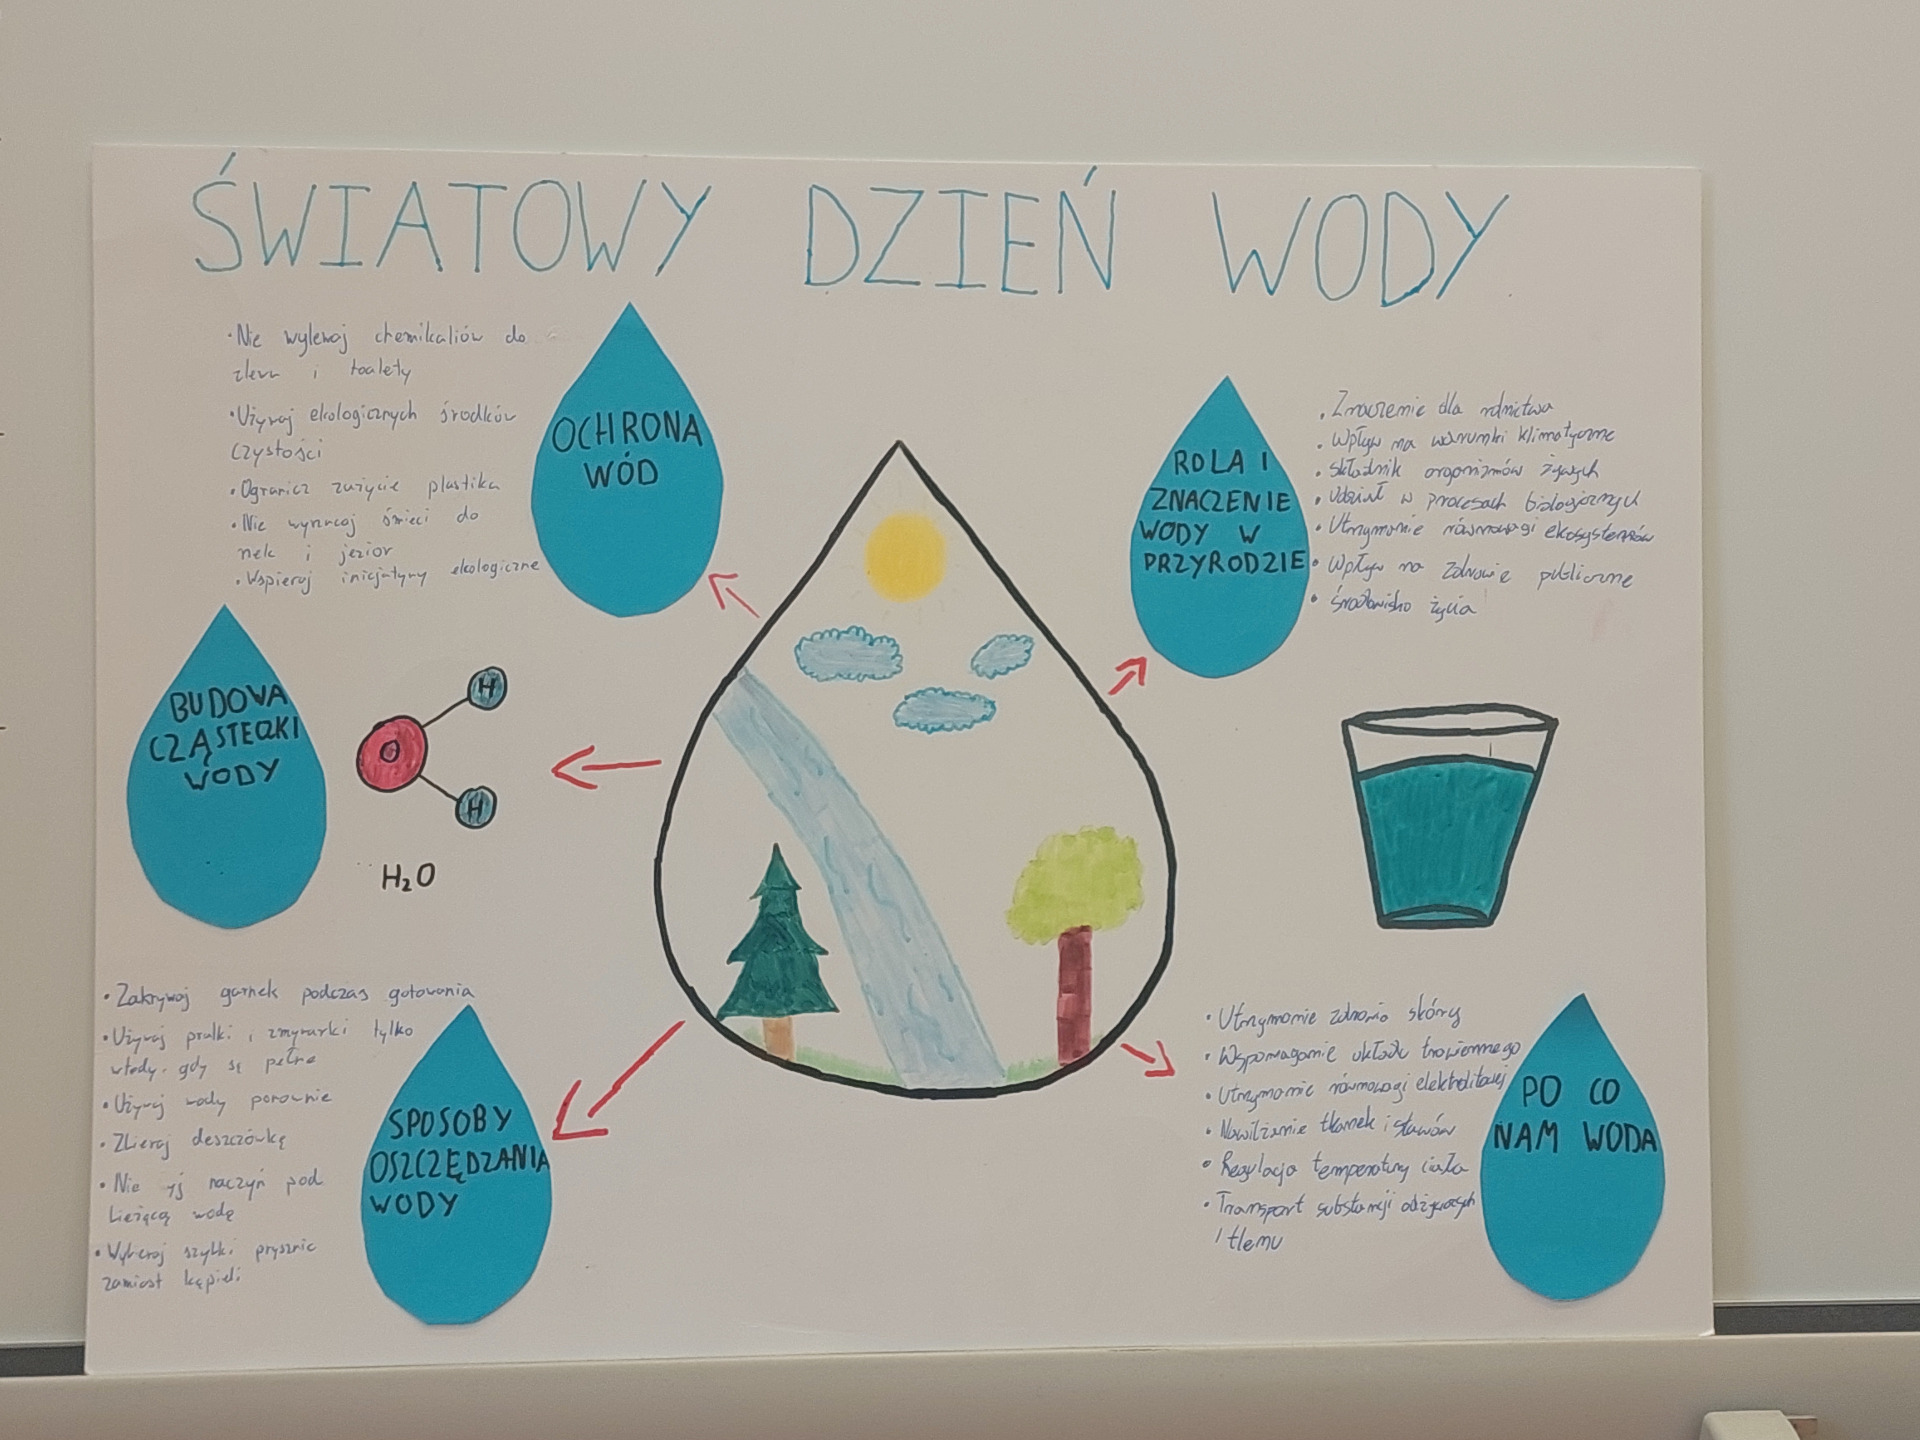 ŚWIATOWY DZIEŃ WODY
• Nie wylewaj chemikaliów do
zlewu i toalety
• Używaj ekologicznych środków
czystości
• Ogranicz zużycie plastiku
• Nie wyrzucaj śmieci do
rzek i jezior
• Wspieraj inicjatywy ekologiczne
OCHRONA
WÓD
ROLA I
ZNACZENIE
WODY W
PRZYRODZIE
• Znaczenie dla rolnictwa
• Wpływ na warunki klimatyczne
• Składnik organizmów żywych
• Udział w procesach biologicznych
• Utrzymanie równowagi ekosystemów
• Wpływ na zdrowie publiczne
• Środowisko życia
BUDOWA
CZĄSTECZKI
WODY
H
O
H
H₂O
• Zakrywaj garnek podczas gotowania
• Używaj pralki i zmywarki tylko
wtedy, gdy są pełne
• Używaj wody ponownie
• Zbieraj deszczówkę
• Nie myj naczyń pod
bieżącą wodą
• Wybieraj szybki prysznic
zamiast kąpieli
SPOSOBY
OSZCZĘDZANIA
WODY
• Utrzymanie zdrowia skóry
• Wspomaganie układu trawiennego
• Utrzymanie równowagi elektrolitowej
• Nawilżanie tkanek i stawów
• Regulacja temperatury ciała
• Transport substancji odżywczych
i tlenu
PO CO
NAM WODA